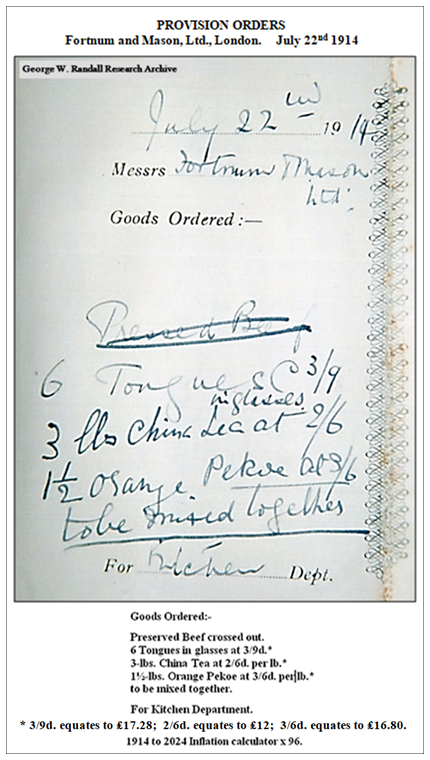 PROVISION ORDERS
Fortnum and Mason, Ltd., London. July 22nd 1914
George W. Randall Research Archive
July 22nd 1914
Messrs Fortnum & Mason
Ltd.
Goods Ordered :—
Pressed Beef
6 Tongues @ 3/9
in glasses
3 lbs China tea at 2/6
1½ Orange Pekoe at 3/6
to be mixed together
For Kitchen Dept.
Goods Ordered:-
Preserved Beef crossed out.
6 Tongues in glasses at 3/9d.*
3-lbs. China Tea at 2/6d. per lb.*
1½-lbs. Orange Pekoe at 3/6d. per lb.*
to be mixed together.
For Kitchen Department.
* 3/9d. equates to £17.28; 2/6d. equates to £12; 3/6d. equates to £16.80.
1914 to 2024 Inflation calculator x 96.